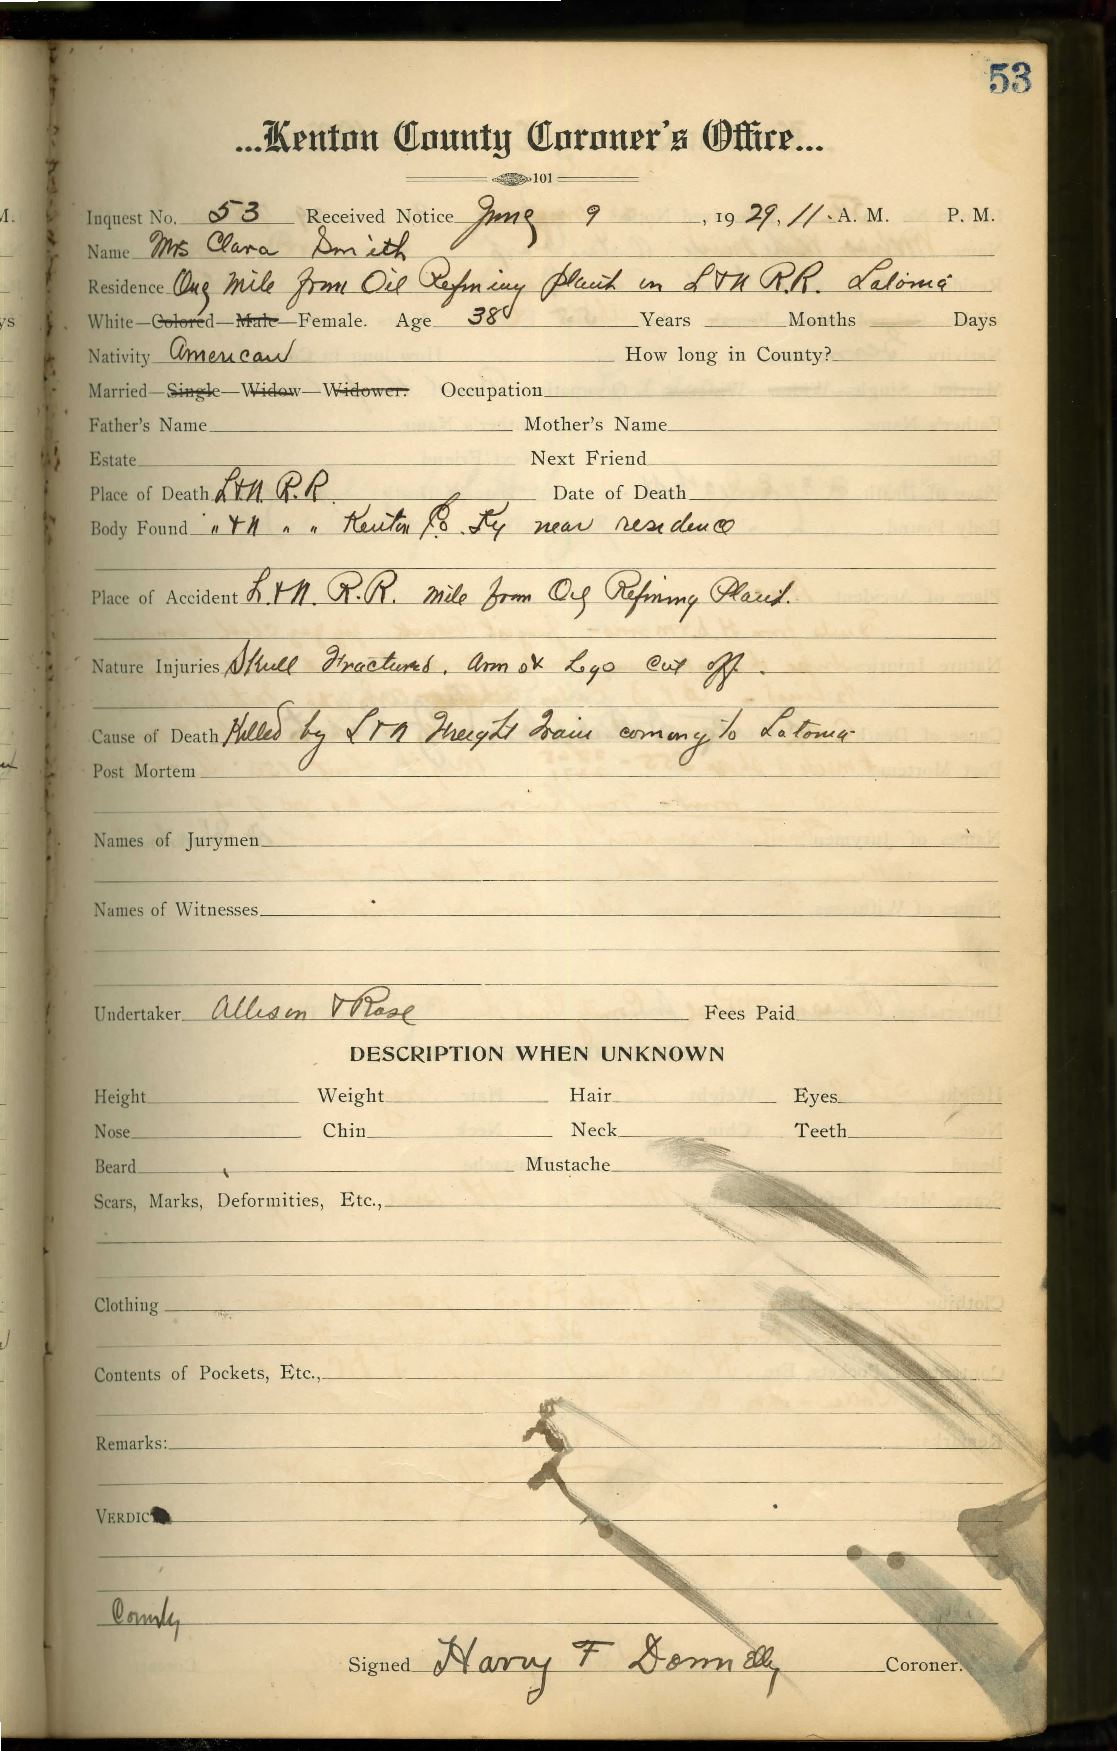 53
...Kenton County Coroner's Office...
101
Inquest No. 53 Received Notice June 9, 1929, 11 A. M. P. M.
Name Mrs Clara Smith
Residence One Mile from Oil Refining Plant on L & N R.R. Latonia
White—Colored—Male—Female. Age 38 Years Months Days
Nativity American How long in County?
Married—Single—Widow—Widower. Occupation
Father's Name Mother's Name
Estate Next Friend
Place of Death L & N. R.R. Date of Death
Body Found " & N " " Kenton Co. Ky near residence
Place of Accident L. & N. R.R. Mile from Oil Refining Plant.
Nature Injuries Skull Fractured. Arm & Legs Cut off.
Cause of Death Killed by L & N Freight Train coming to Latonia
Post Mortem
Names of Jurymen
Names of Witnesses
Undertaker Allison & Rose Fees Paid
DESCRIPTION WHEN UNKNOWN
Height Weight Hair Eyes
Nose Chin Neck Teeth
Beard Mustache
Scars, Marks, Deformities, Etc.,
Clothing
Contents of Pockets, Etc.,
Remarks:
VERDIC
County
Signed Harry F Donnelly Coroner.